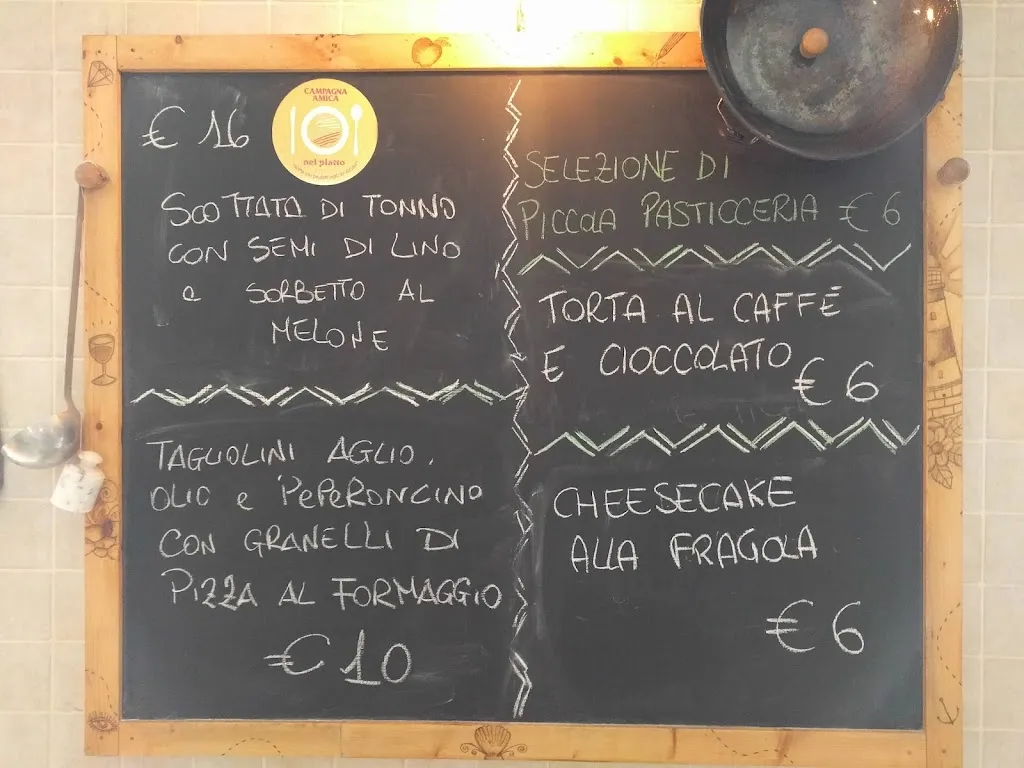 € 16
CAMPAGNA
AMICA
nel piatto
SCOTTATA DI TONNO
CON SEMI DI LINO
e SORBETTO AL
MELONE
TAGLIOLINI AGLIO,
OLIO e PEPERONCINO
CON GRANELLI DI
PIZZA AL FORMAGGIO
€ 10
SELEZIONE DI
PICCOLA PASTICCERIA € 6
TORTA AL CAFFÉ
E CIOCCOLATO
€ 6
CHEESECAKE
ALLA FRAGOLA
€ 6